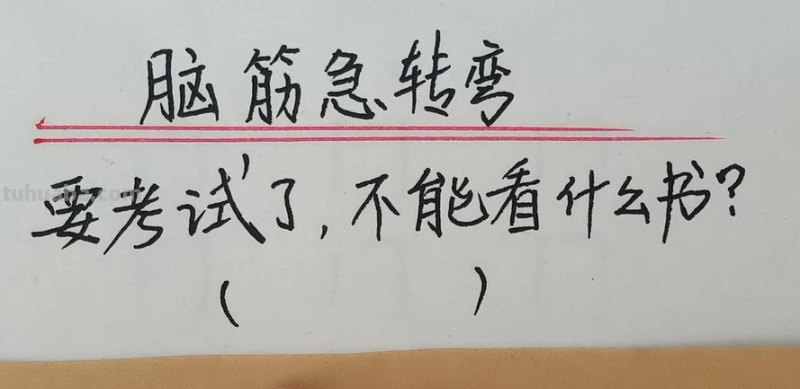 脑筋急转弯
要考试了,不能看什么书?
(        )
tuhuabao.com